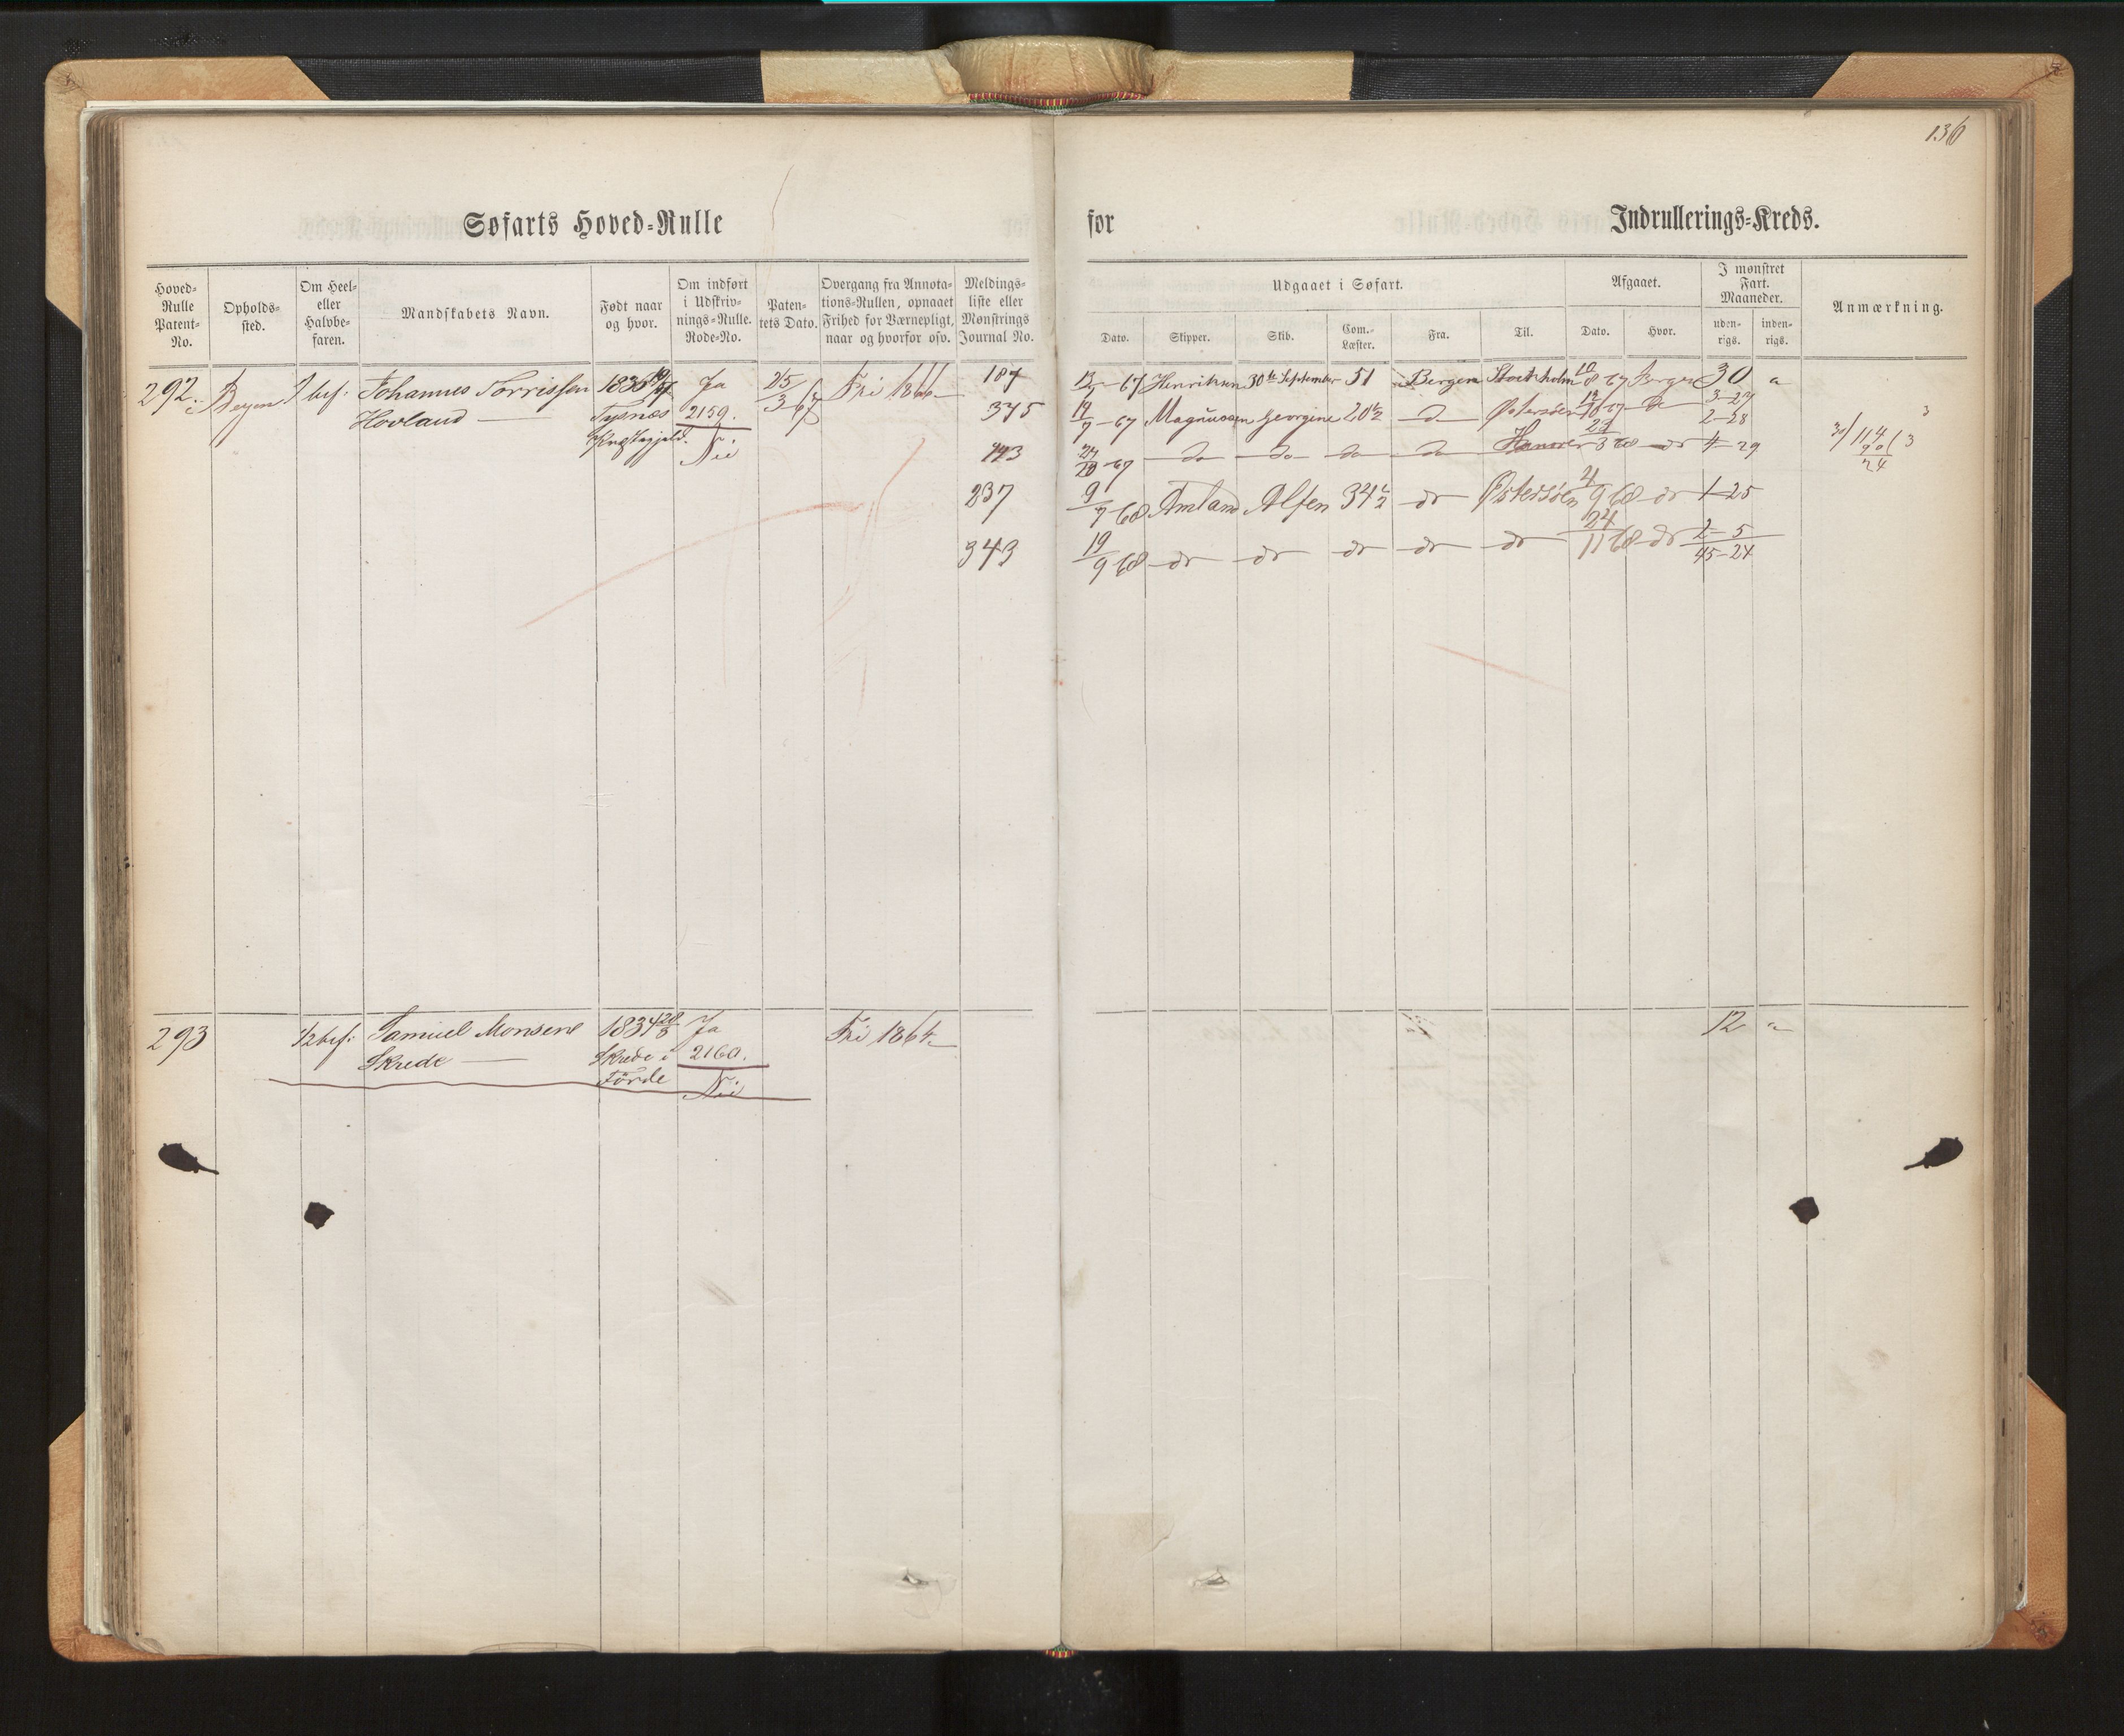 136
Søfarts Hoved-Rulle
for
Indrullerings-Kreds.
Hoved-
Rulle
Patent-
No.
Opholds-
sted.
Om Heel-
eller
Halvbe-
faren.
Mandskabets Navn.
Født naar
og hvor.
Om indført
i Udskriv-
nings-Rulle.
Rode-No.
Paten-
tets Dato.
Overgang fra Annota-
tions-Rullen, opnaaet
Frihed for Værnepligt,
naar og hvorfor osv.
Meldings-
liste eller
Mønstrings
Journal No.
Udgaaet i Søfart.
Dato.
Skipper.
Skib.
Com.-
Læster.
Fra.
Til.
Afgaaet.
Dato.
Hvor.
I mønstret
Fart.
Maaneder.
uden-
rigs.
inden-
rigs.
Anmærkning.
292.
bef:
Johannes Torrissen
Hovland —
1836
Tysnæs
Ja
2159.
Nei
25/3 67
Fri 1866
187 67 Henriksen 30te September 51 Bergen Stockholm 10/8 67 Bergen 30 "
375 67 Magnussen Georgine 20½ do Østersøen 67 do 3-27
2-28
67 do do do do 68 do 29
237 9/7 68 Amland Alfen 34½ do Østersøen 4/9 68 do 1-25
343 19/9 68 do do do do do 24/11 68 do 2-5
45-24
293
½ bef:
Samuel Monsen
Skrede —
1834
Skrede i
Förde
Ja
2160.
Nei
Fri 1864
12 "